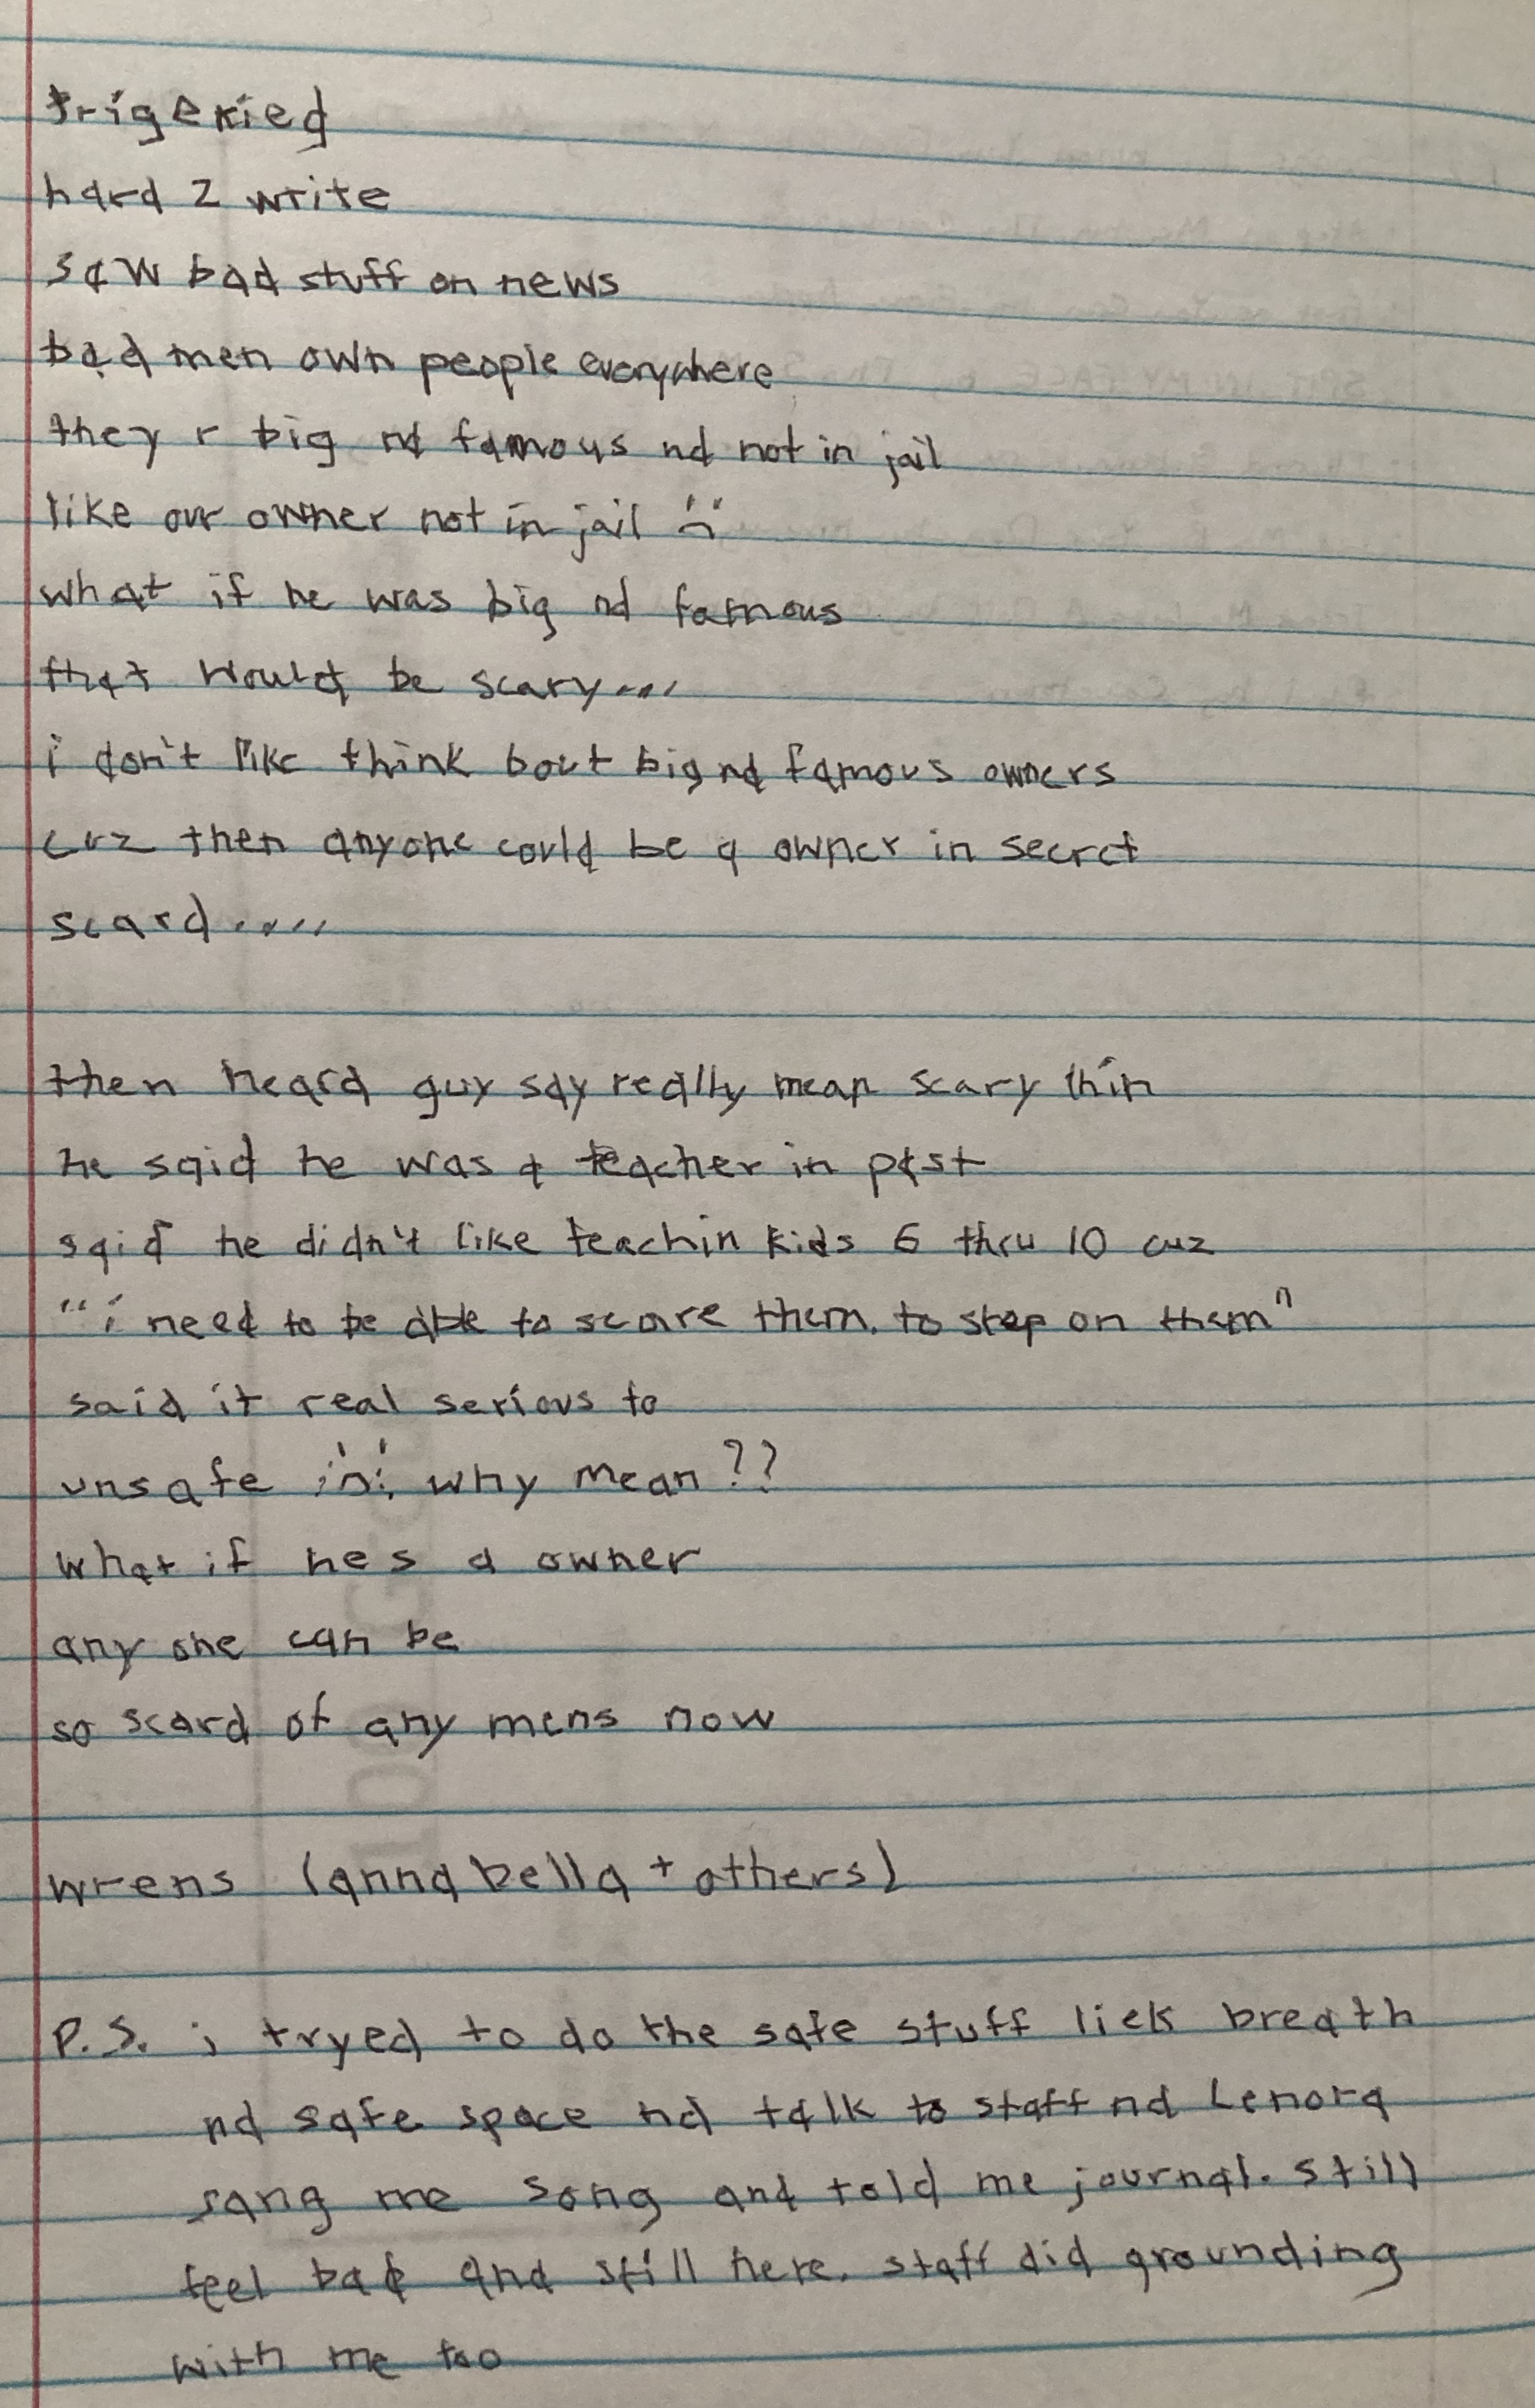 trigeried
hard 2 write
saw bad stuff on news
bad men own people everywhere
they r big nd famous nd not in jail
like our owner not in jail :(
what if he was big nd famous
that would be scary....
i don't like think bout big nd famous owners
cuz then anyone could be a owner in secret
scard.....
then heard guy say really mean scary thin
he said he was a teacher in past
said he didn't like teachin kids 6 thru 10 cuz
"i need to be able to scare them. to step on them"
said it real serious to
unsafe why mean??
what if hes a owner
any one can be
so scard of any mens now
wrens (annabella + others)
P.S. i tryed to do the safe stuff liek breath
nd safe space nd talk to staff nd Lenora
sang me song and told me journal. still
feel bad and still here. staff did grounding
with me too